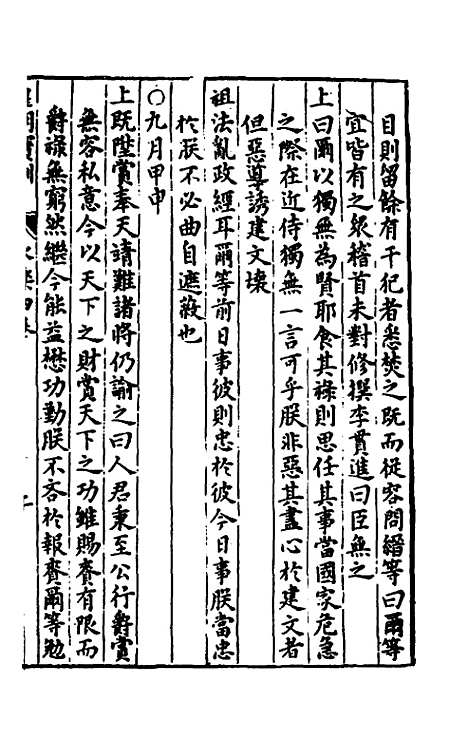 目則留餘有干犯者悉焚之既而從容問縉等曰爾等
宜皆有之衆稽首未對修撰李貫進曰臣無之
上曰爾以獨無為賢耶食其祿則思任其事當國家危急
之際在近侍獨無一言可乎朕非惡其盡心於建文者
但惡導誘建文壞
祖法亂政經耳爾等前日事彼則忠於彼今日事朕當忠
於朕不必曲自遮蔽也
〇九月甲申
上既陞賞奉天請難諸將仍諭之曰人君秉至公行爵賞
無容私意今以天下之財賞天下之功雖賜賚有限而
爵祿無窮然繼今能益懋功勤朕不吝於報賚爾等勉